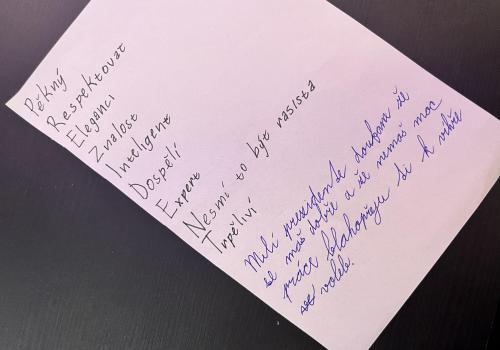 Pěkný
Respektovat
Eleganci
Znalost
Inteligent
Dospělí
Expert
Nesmí to být rasista
Trpěliví
Milí prezidente doufám že
se máš dobře a že nemáš moc
práce blahopřeju ti k výhře
ve volebě.